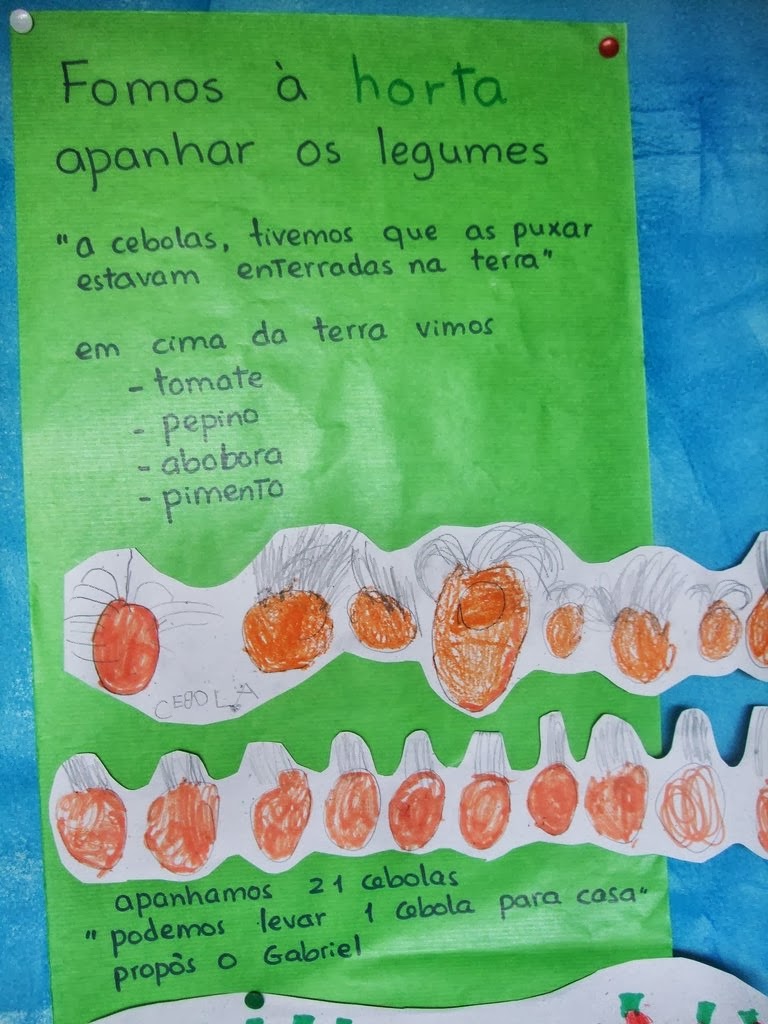 Fomos à horta
apanhar os legumes
"a cebolas, tivemos que as puxar
estavam enterradas na terra"
em cima da terra vimos
- tomate
- pepino
- abobora
- pimento
CEBOLA
apanhamos 21 cebolas
"podemos levar 1 cebola para casa"
propôs o Gabriel